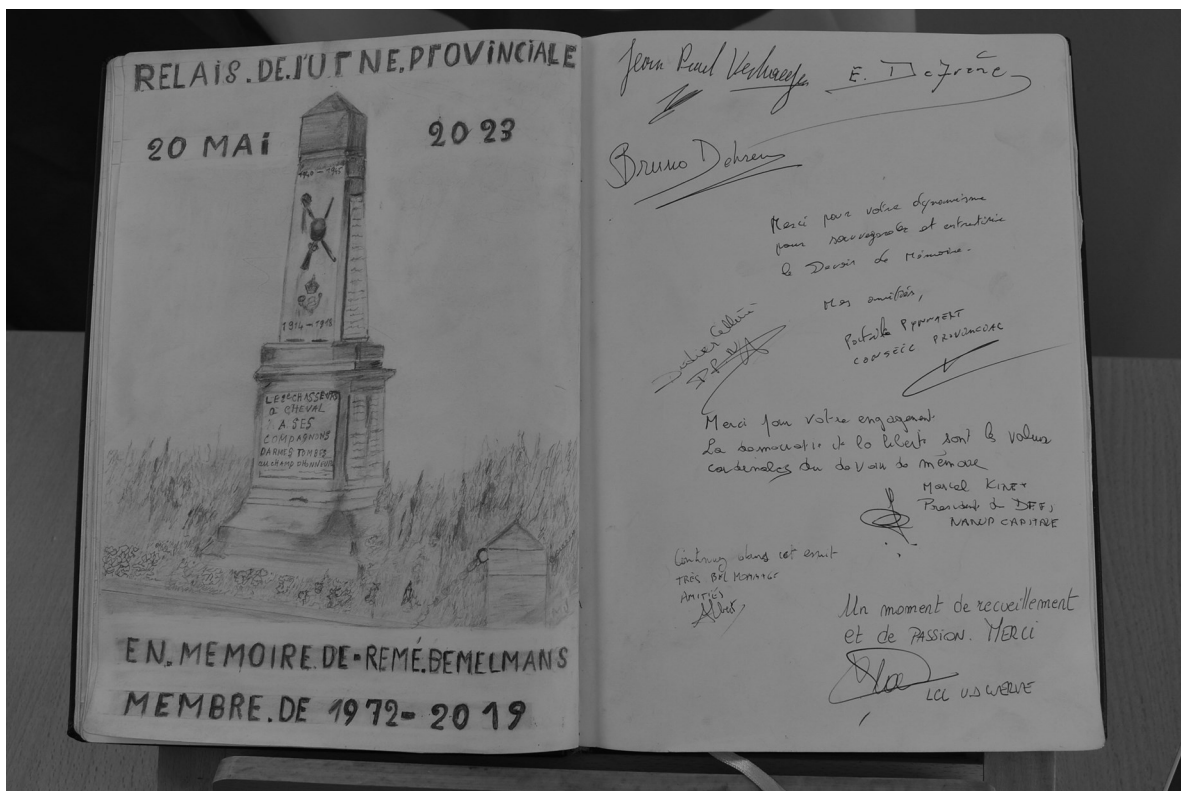 RELAIS.DE.l'URNE.PROVINCIALE
20 MAI 2023
1940-1945
1914-1918
LE 2e CHASSEURS
à CHEVAL
A SES
COMPAGNONS
D'ARMES TOMBES
AU CHAMP D'HONNEUR
EN.MEMOIRE.DE-REMÉ.BEMELMANS
MEMBRE.DE 1972-2019
Jean Paul
E.
Bruno
Merci pour votre dynamisme
pour sauvegarder et entretenir
le Devoir de Mémoire.
Mes amitiés,
CONSEIL PROVINCIAL
Merci pour votre engagement
La démocratie et la liberté sont les valeurs
cardinales du devoir de mémoire
Marcel KINET
President du
NAMUR CAPITALE
Continuez dans cet esprit
TRÈS BEL HOMMAGE
AMITIÉS
Albert
Un moment de recueillement
et de PASSION. MERCI
LCL